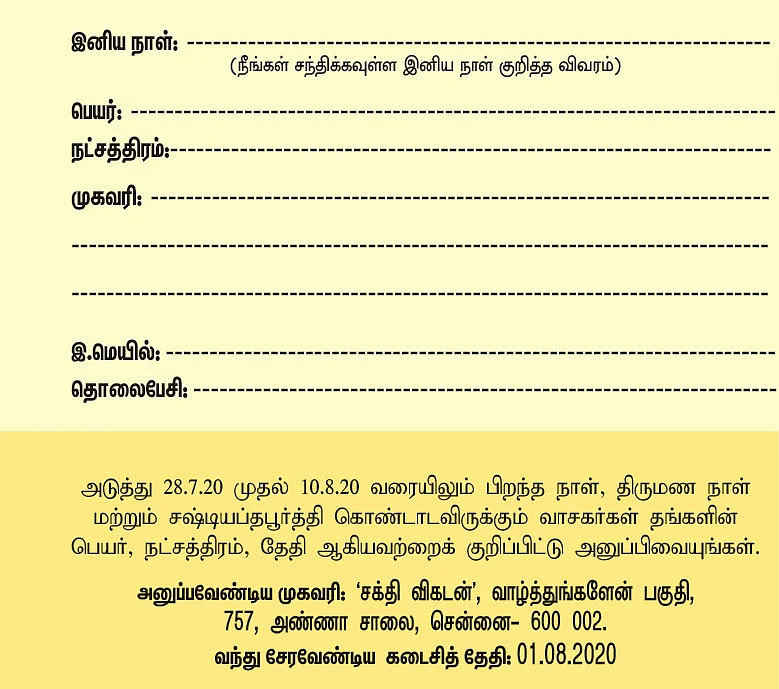 இனிய நாள்: ------------------------------------------------------------------
(நீங்கள் சந்திக்கவுள்ள இனிய நாள் குறித்த விவரம்)
பெயர்: ------------------------------------------------------------------------
நட்சத்திரம்:--------------------------------------------------------------------
முகவரி: ----------------------------------------------------------------------
-------------------------------------------------------------------------------
-------------------------------------------------------------------------------
இ.மெயில்: ---------------------------------------------------------------------
தொலைபேசி: ------------------------------------------------------------------
அடுத்து 28.7.20 முதல் 10.8.20 வரையிலும் பிறந்த நாள், திருமண நாள்
மற்றும் சஷ்டியப்தபூர்த்தி கொண்டாடவிருக்கும் வாசகர்கள் தங்களின்
பெயர், நட்சத்திரம், தேதி ஆகியவற்றைக் குறிப்பிட்டு அனுப்பிவையுங்கள்.
அனுப்பவேண்டிய முகவரி: ‘சக்தி விகடன்’, வாழ்த்துங்களேன் பகுதி,
757, அண்ணா சாலை, சென்னை- 600 002.
வந்து சேரவேண்டிய கடைசித் தேதி: 01.08.2020